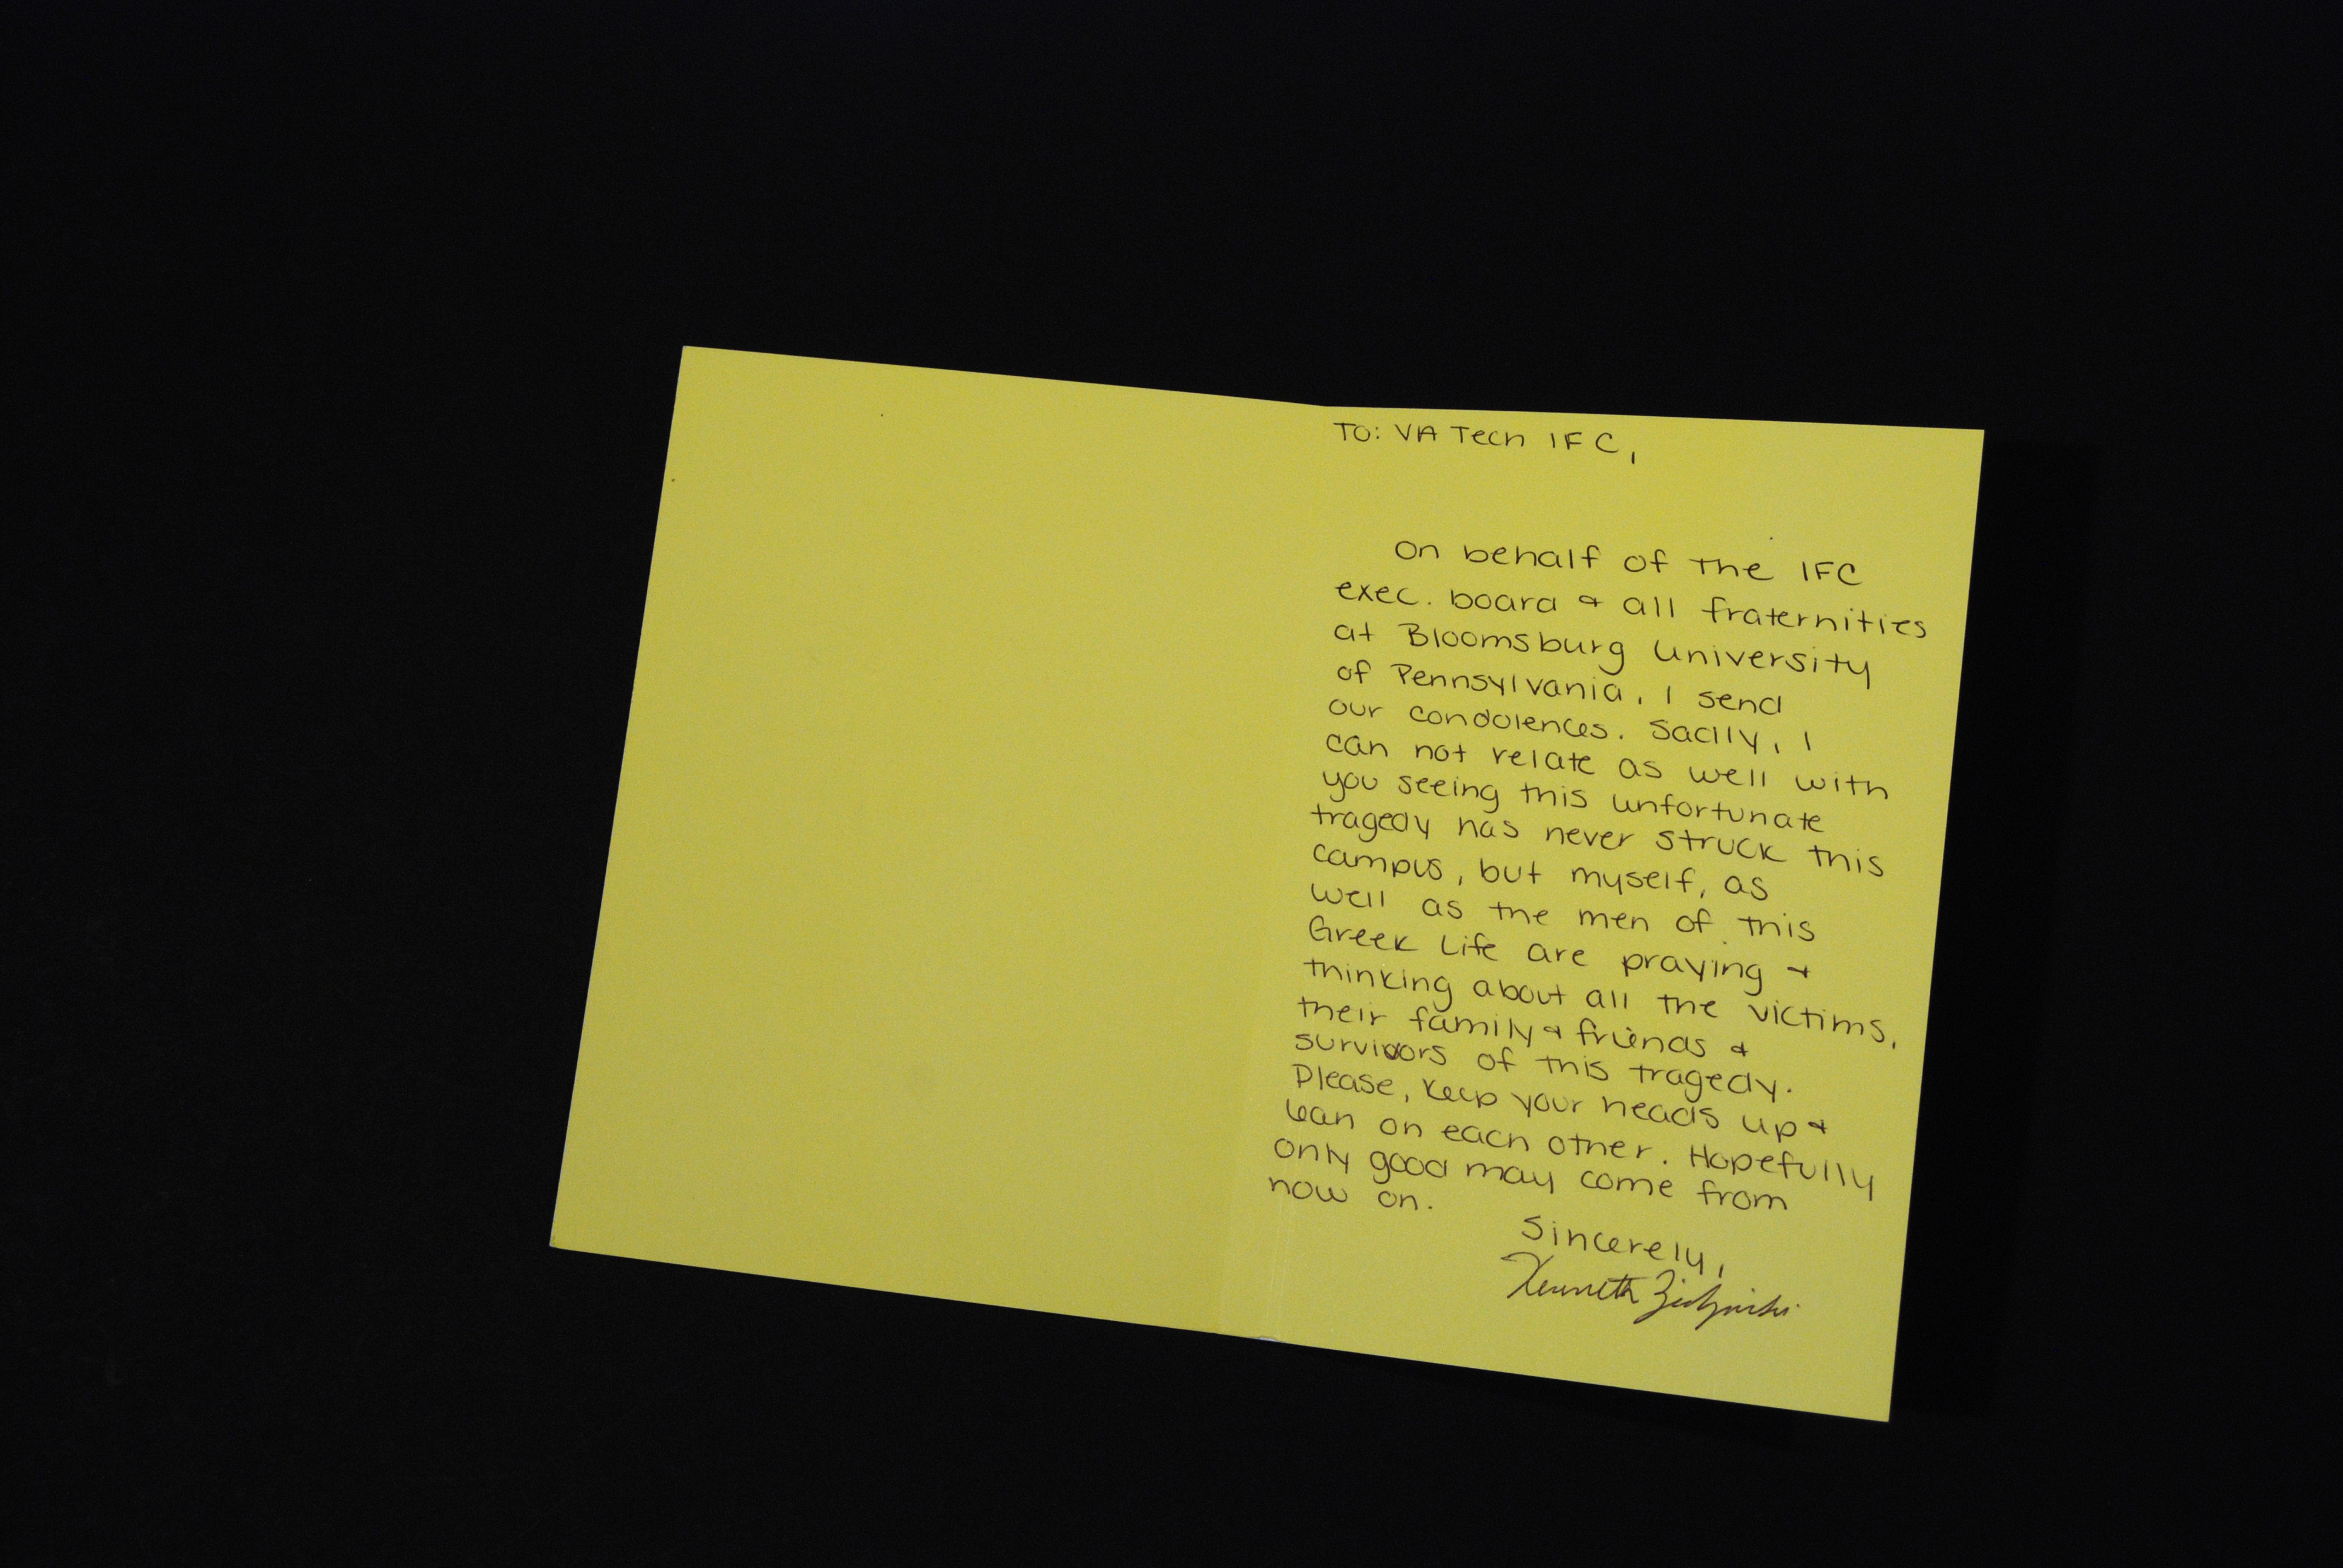 To: VA Tech IFC,
On behalf of the IFC
exec. board & all fraternities
at Bloomsburg University
of Pennsylvania, I send
our condolences. Sadly, I
can not relate as well with
you seeing this unfortunate
tragedy has never struck this
campus, but myself, as
well as the men of this
Greek Life are praying &
thinking about all the victims,
their family & friends &
survivors of this tragedy.
Please, keep your heads up &
lean on each other. Hopefully
only good may come from
now on.
Sincerely,
Kenneth